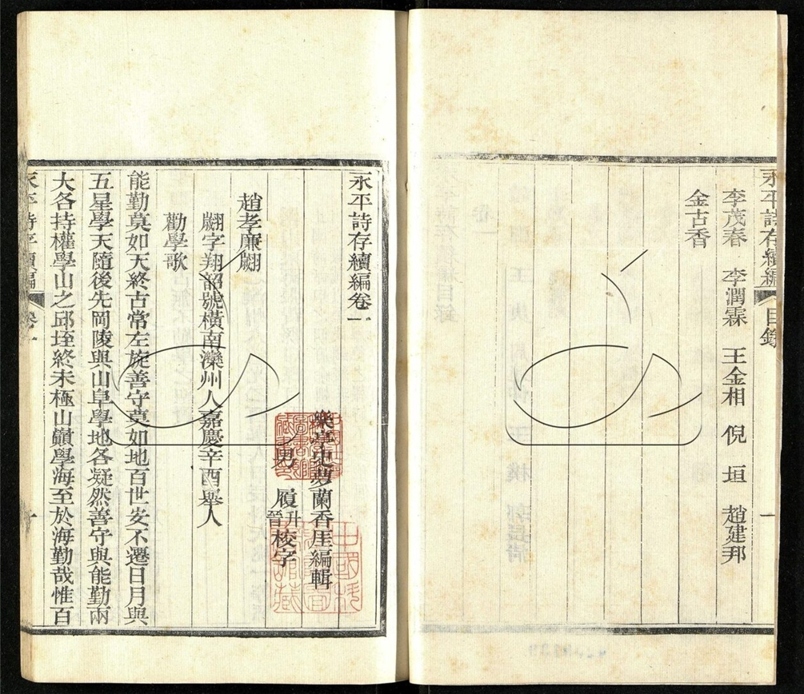 永平詩存續編 目錄
李茂春 李潤霖 王金相 倪垣 趙建邦
金古香
一
永平詩存續編卷一
樂亭史夢蘭香厓編輯
男 履升晉 校字
趙孝廉翽
翽字翔韶號橫南灤州人嘉慶辛酉舉人
勸學歌
能勤莫如天終古常左旋善守莫如地百世安不遷日月與
五星學天隨後先岡陵與山阜學地各凝然善守與能勤兩
大各持權學山之邱垤終未極山巔學海至於海勤哉惟百
永平詩存續編 卷一
一